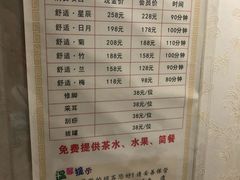 现金价 会员价 时间
舒适·星辰 258元 228元 90分钟
舒适·日月 198元 178元 110分钟
舒适·菊 208元 188元 90分钟
舒适·竹 158元 138元 90分钟
舒适·兰 158元 138元 80分钟
舒适·梅 118元 98元 80分钟
修脚 38元/位
采耳 38元/位
刮痧 38元/位
拔罐 38元/位
免费提供茶水、水果、简餐
温馨提示